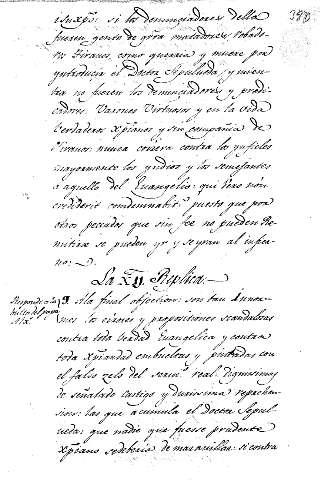 388
Jesuxpo: si los denunciadores della
fuesen gente de grra matadores, robado-
res Tiranos, como queria y mueve por
introducir el Doctor Sepulueda; y mien-
tra no fueren los denunciadores y predi-
cadores Varones Virtuosos y en la vida
Verdaderos xpianos y sin compañia de
Tiranos nunca correra contra los ynfieles
mayormente los yndios y los semejantes
a aquello del Evangelio: qui vero non
crediderit condemnabitr puesto que por
otros peccados que sin fee no se pueden Re-
mitir se pueden yr y se yran al infier-
no:
La XII Replica.
Responde a la
bulla del papa
Alex
A la final objection: son tan ennor-
mes los errores y proposiciones scandalosas
contra toda verdad Evangelica y contra
toda xpiandad embueltas y pintadas con
el falso zelo del servicio real dignissimas
de señalado castigo y durissima reprehen-
sion: las que acumula el Doctor Sepul-
ueda: que nadie que fuesse prudente
xpiano se deberia de maravillar: si contra